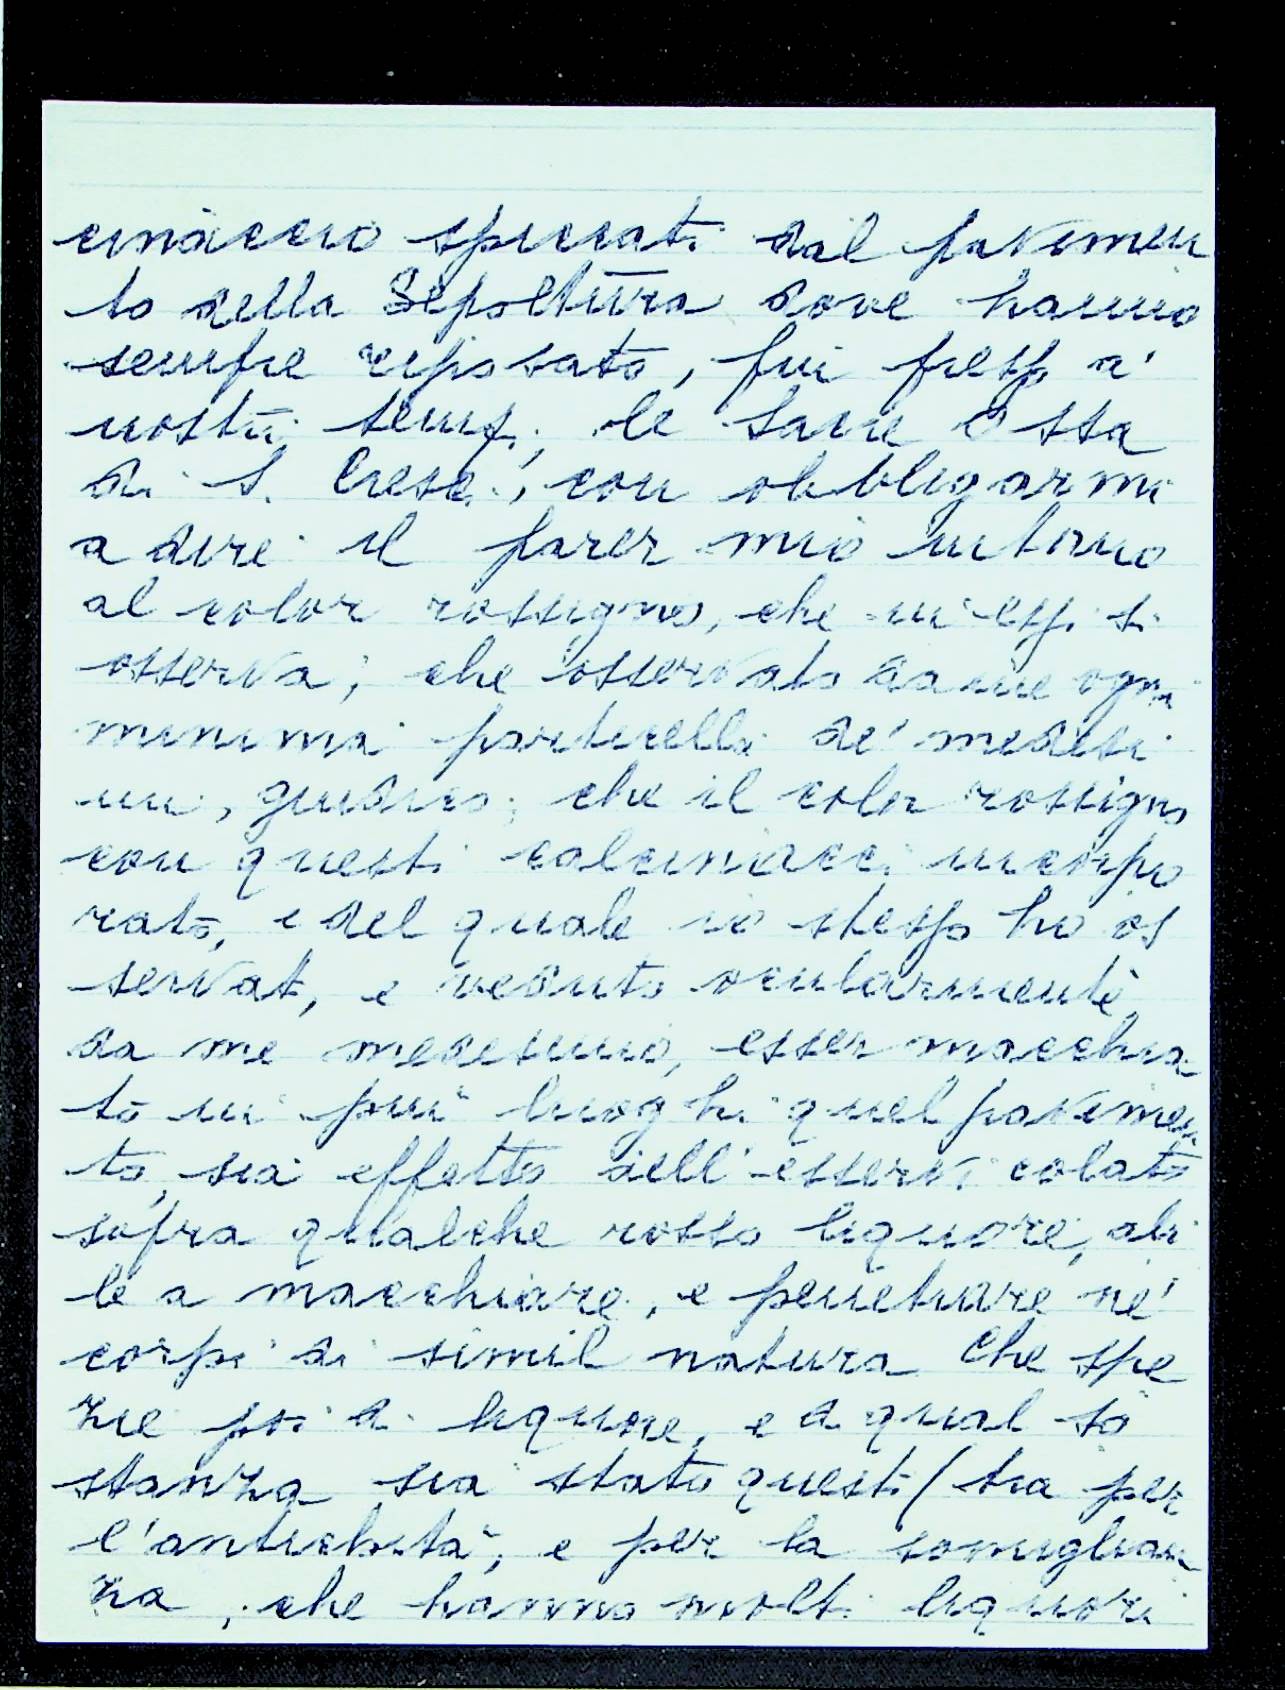 cinaccio spiccati dal pavimen
to della Sepoltura dove hanno
sempre riposato, fin presso a'
nostri tempi, le Sacre Ossa
di S. Cresci, con obbligarmi
a dire il parer mio intorno
al color rossigno, che in essi si
osserva; che osservato da me ogni
minima particella de' medesi
mi, giudico, che il color rossigno
con questi calcinacci incorpo
rato, e del quale io stesso ho os
servato, e veduto ocularmente
da me medesimo, esser macchia
to in più luoghi quel pavimen
to, sia effetto dell'esservi colato
sopra qualche rosso liquore, abi
le a macchiare, e penetrare ne'
corpi di simil natura Che spe
zie poi di liquore, e di qual so
stanza sia stato questi (sia per
l'antichità, e per la somiglian
za, che hanno molti liquori